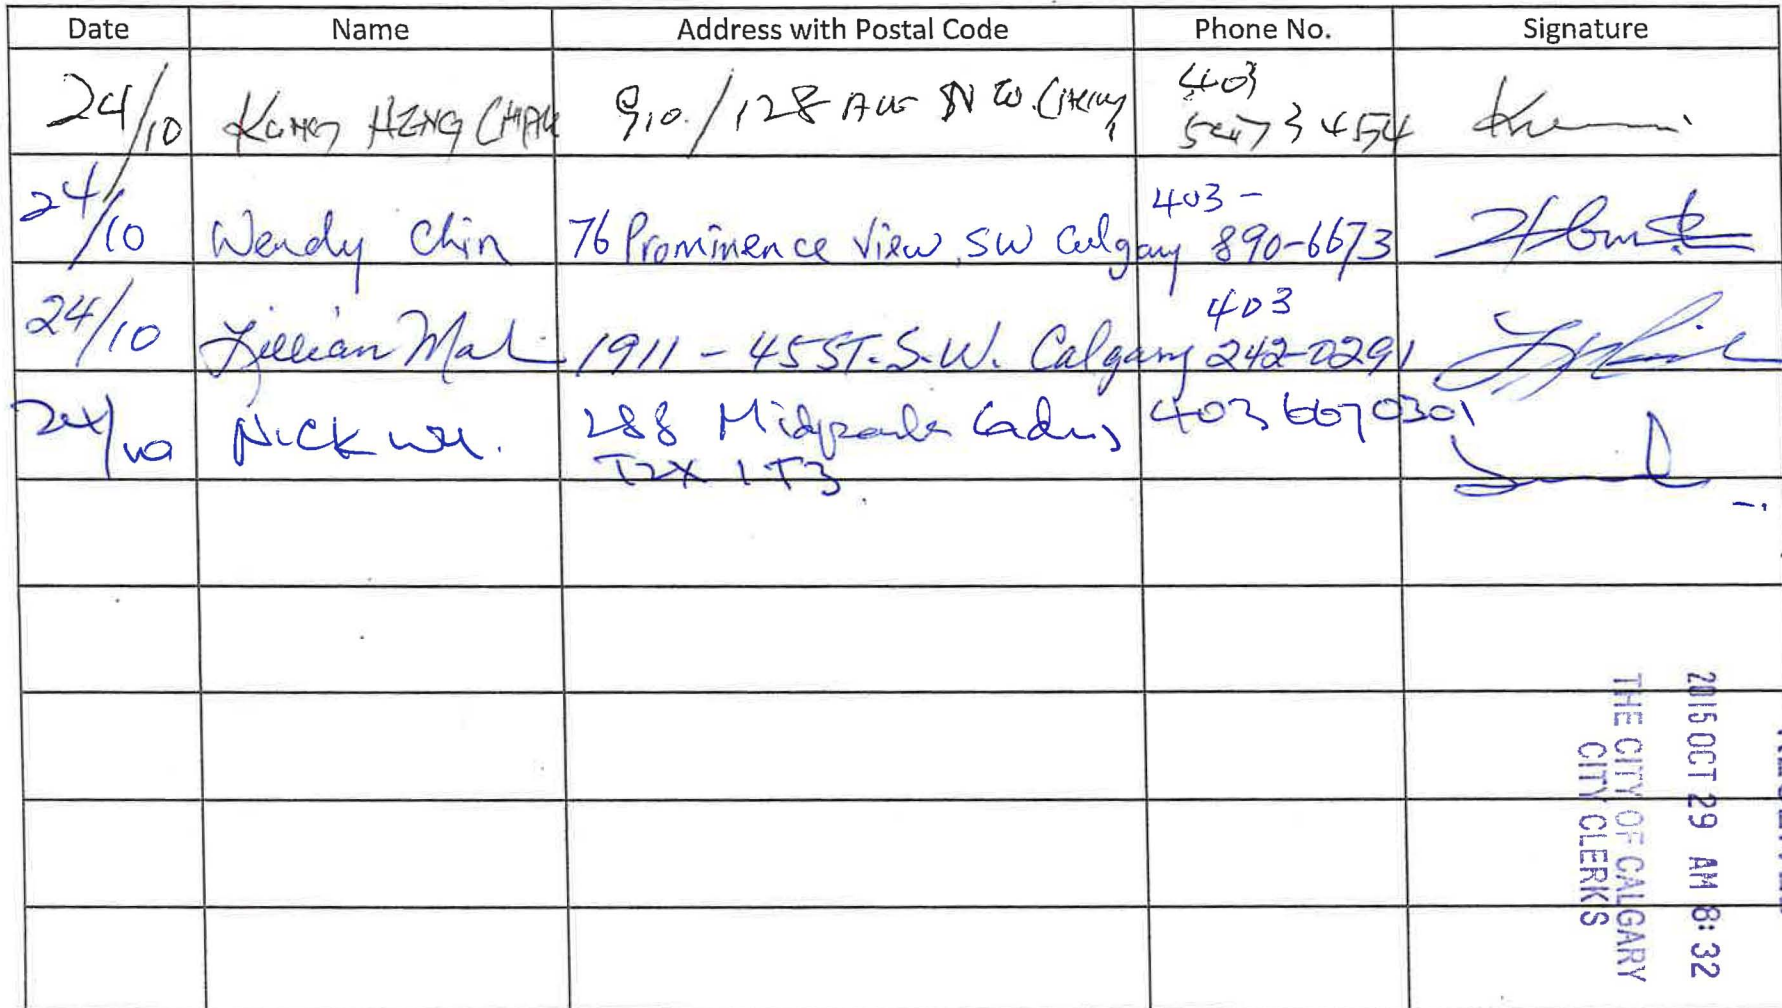 Date Name Address with Postal Code Phone No. Signature
24/10 HENG 910./128 AVE N W. 403
24/10 Wendy Chin 76 Prominence View, SW Calgary 403-
890-6673
24/10 Lillian 1911 - 45 ST. S.W. Calgary 403
242-0291
24/10 Nick Wu. 288 4036670301
T2X 1T3
2015 OCT 29 AM 8:32
THE CITY OF CALGARY
CITY CLERKS